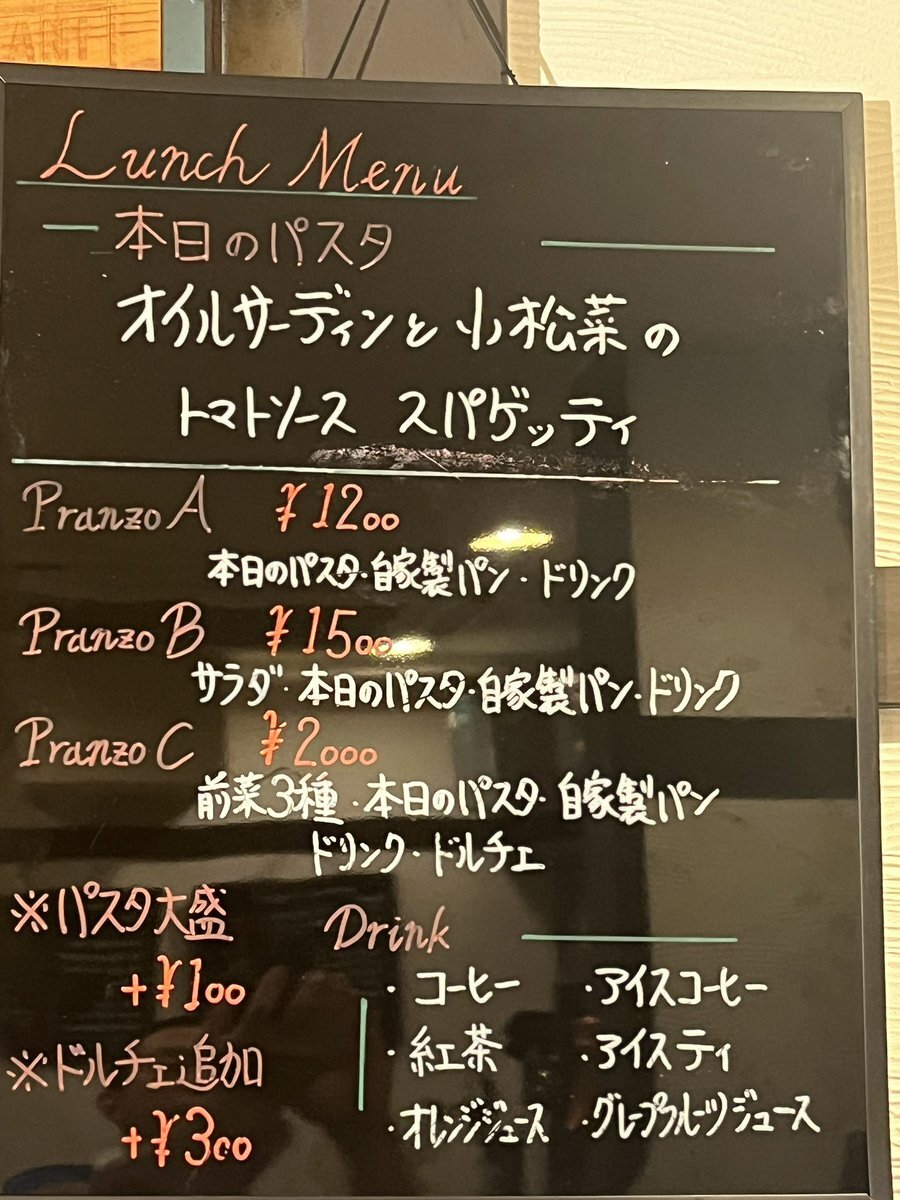 Lunch Menu
本日のパスタ
オイルサーディンと小松菜の
トマトソース スパゲッティ
Pranzo A ¥1200
本日のパスタ・自家製パン・ドリンク
Pranzo B ¥1500
サラダ・本日のパスタ・自家製パン・ドリンク
Pranzo C ¥2000
前菜3種・本日のパスタ・自家製パン
ドリンク・ドルチェ
※パスタ大盛
+¥100
※ドルチェ追加
+¥300
Drink
・コーヒー ・アイスコーヒー
・紅茶 ・アイスティ
・オレンジジュース ・グレープフルーツジュース